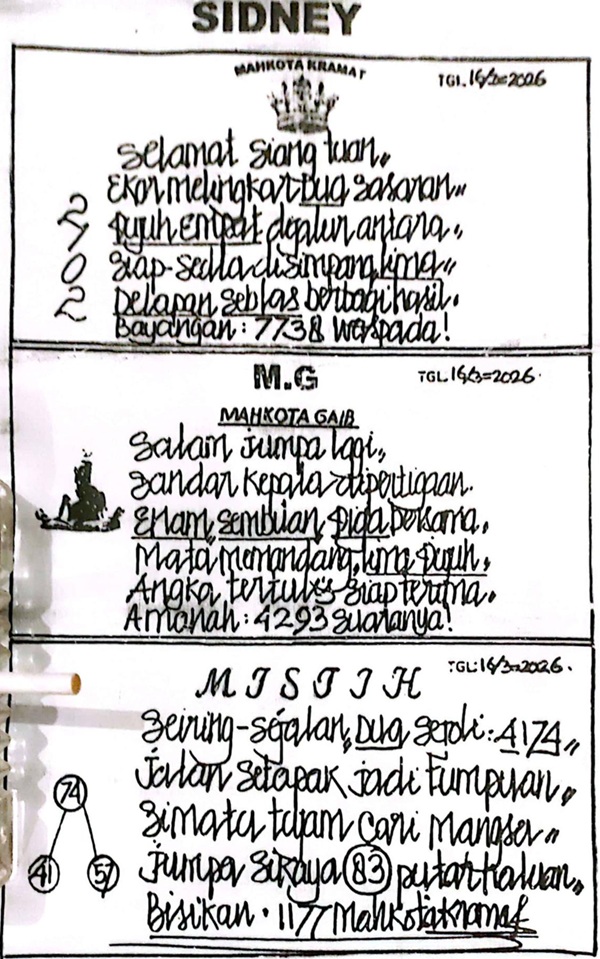 SIDNEY
MAHKOTA KRAMAT
TGL. 16/3=2026
Selamat siang tuan,,
Ekor melingkar Dua sasaran,,
2
7
0
2
Tujuh Empat digalur antara,,
Siap-sedia disimpang lima,,
Delapan seblas berbagi hasil.
Bayangan: 7738 Waspada!
M.G
TGL. 16/3=2026.
MAHKOTA GAIB
Salam jumpa lagi,,
Sandar kepala dipertigaan.
Enam, sembilan, Tiga bersama.
Mata memandang, lima Tujuh,
Angka tertulis siap terima.
Amanah: 4293 suaranya!
MISTIH
TGL: 16/3=2026.
Seiring-sejalan,, Dua sejoli: 4174,,
Jalan setapak jadi Tumpuan,,
Simata tajam Cari Mangsa,,
74
41
57
Jumpa sikaya 83 putar haluan,,
Bisikan. 1177 Mahkota kramat